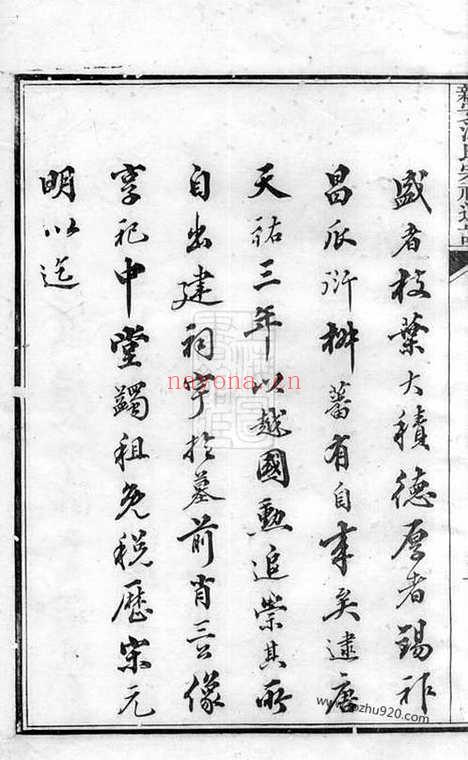 盛者枝葉大積德厚者錫祚
昌瓜衍椒蕃有自來矣逮唐
天祐三年以越國勳追崇其所
自出建祠宇於墓前肖三公像
享祀中堂蠲租免稅歷宋元
明以迄
nayona.cn
bozhu920.com